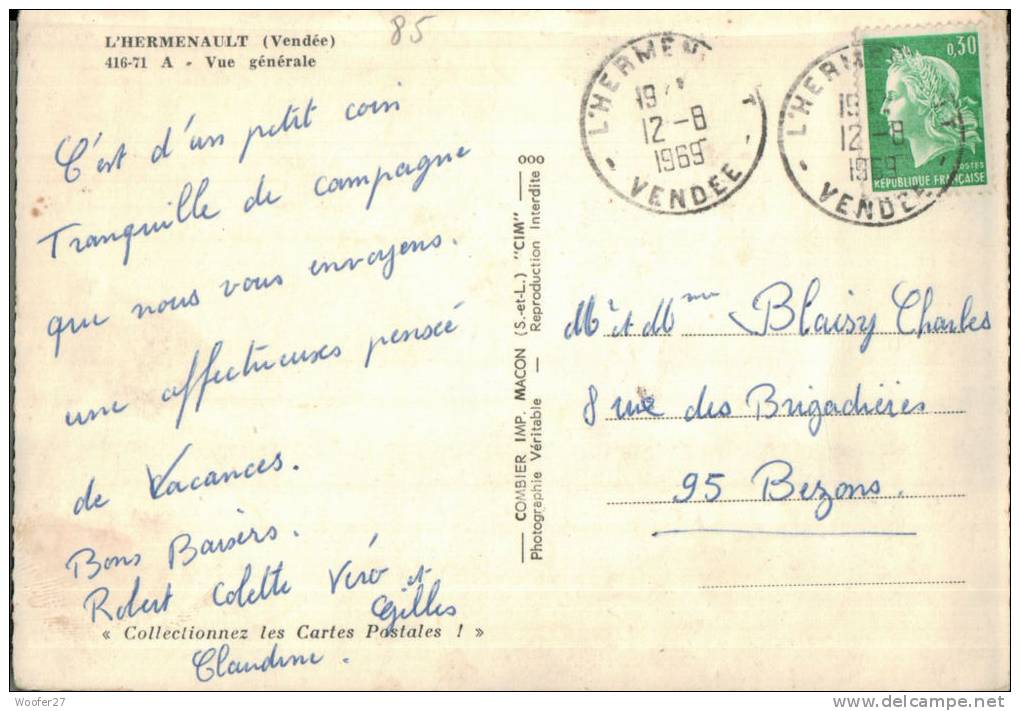 L'HERMENAULT (Vendée)
416-71 A - Vue générale
85
C'est d'un petit coin
Tranquille de campagne
que nous vous envoyons.
une affectueuses pensée
de Vacances.
Bons Baisers.
Robert Colette Véro et
Gilles
« Collectionnez les Cartes Postales ! »
Claudine.
COMBIER IMP. MACON (S.-et-L.) "CIM" ooo
Photographie Véritable — Reproduction Interdite
L'HERMEN T
12-8
1969
- VENDEE -
L'HERME T
12-8
1969
- VENDEE
0,30
POSTES
RÉPUBLIQUE FRANÇAISE
Mr et Mme Blaisy Charles
8 rue des Brigadières
95 Bezons.
Woofer27
www.delcampe.net